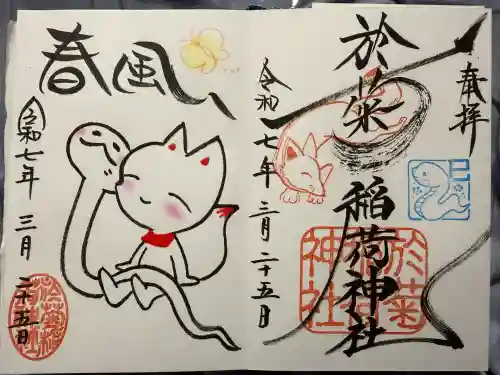 奉拝
於菊稲荷神社
令和七年三月二十五日
巳
於菊稲荷神社
春風
令和七年三月二十五日